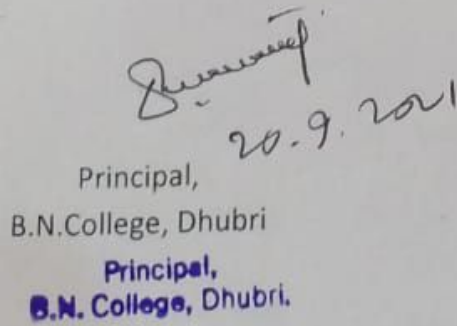 20.9.2021
Principal,
B.N.College, Dhubri
Principal,
B.N. College, Dhubri.